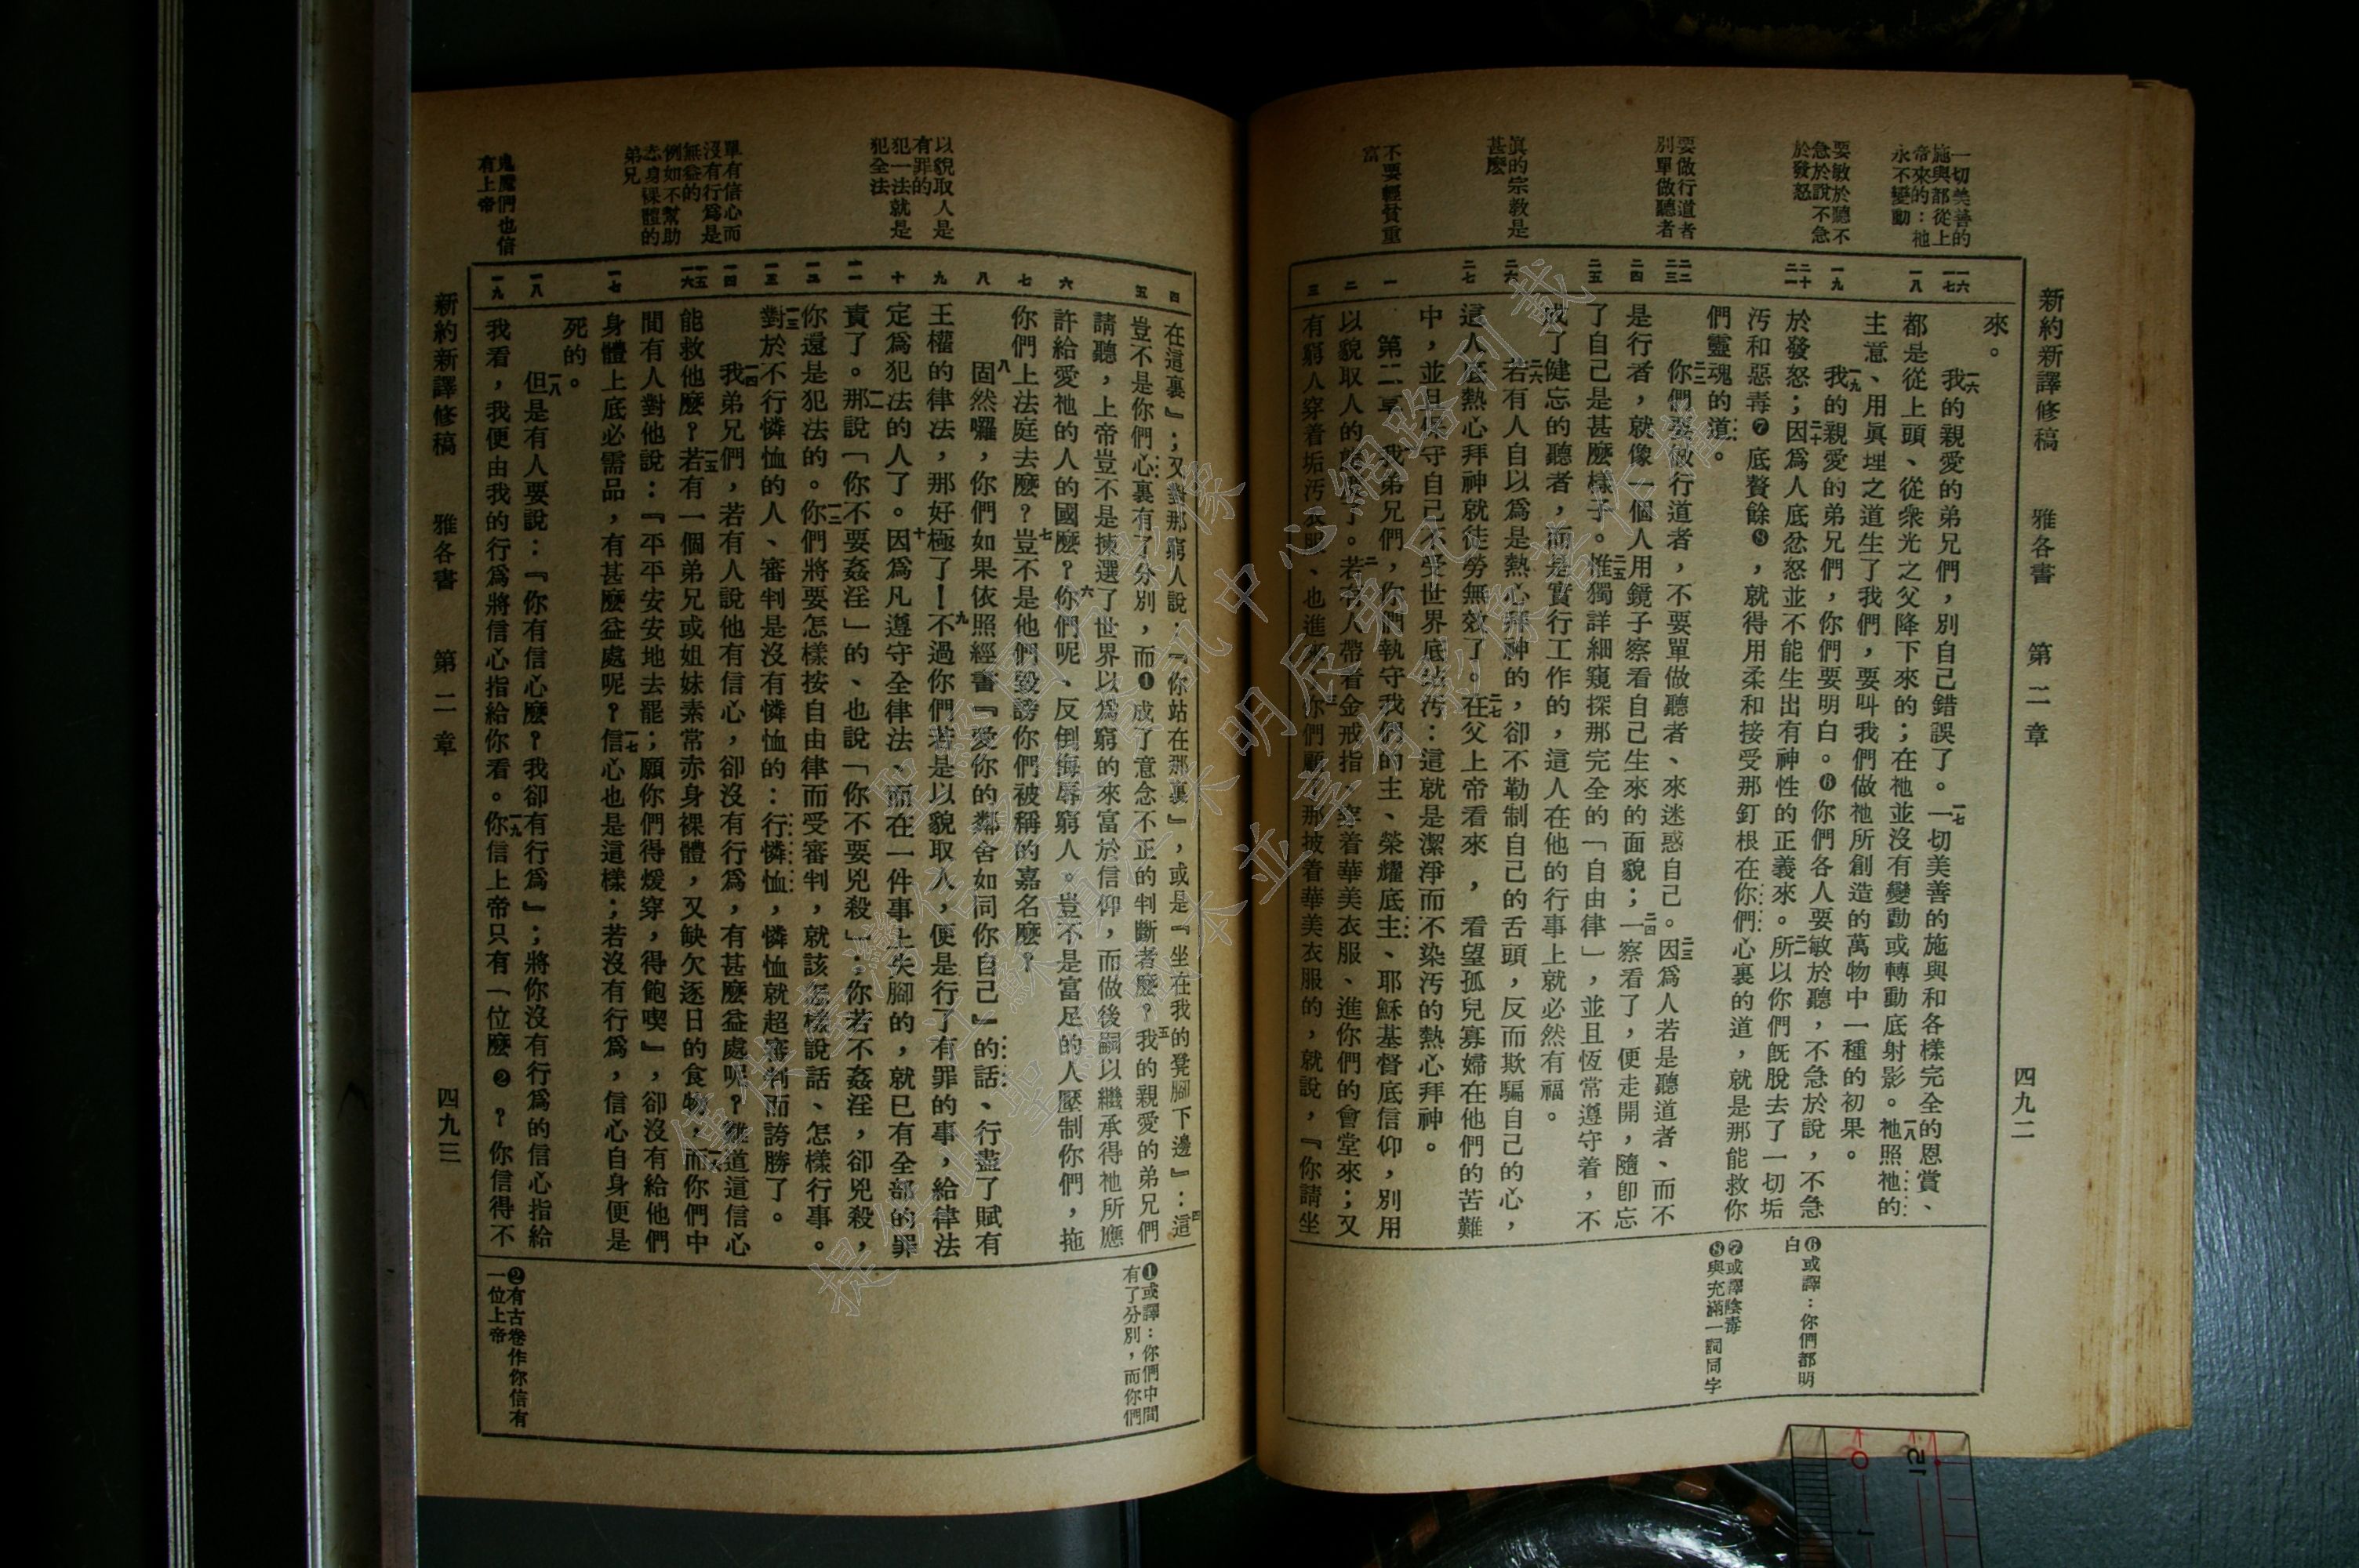 新約新譯修稿 雅各書 第二章 四九二
一切美善的
施與都從上
帝來的：祂
永不變動
要敏於聽不
急於說不急
於發怒
要做行道者
別單做聽者
眞的宗教是
甚麽
不要輕貧重
富
一六
一七
一八
一九
二十
二一
二二
二三
二四
二五
二六
二七
一
二
三
來。
一六我的親愛的弟兄們，別自己錯誤了。一七一切美善的施與和各樣完全的恩賞、
都是從上頭、從衆光之父降下來的；在祂並沒有變動或轉動底射影。一八祂照祂的
主意、用眞理之道生了我們，要叫我們做祂所創造的萬物中一種的初果。
一九我的親愛的弟兄們，你們要明白。❻你們各人要敏於聽，不急於說，不急
於發怒；二十因爲人底忿怒並不能生出有神性的正義來。二一所以你們旣脫去了一切垢
汚和惡毒❼底贅餘❽，就得用柔和接受那釘根在你們心裏的道，就是那能救你
們靈魂的道。
二二你們要做行道者，不要單做聽者、來迷惑自己。二三因爲人若是聽道者、而不
是行者，就像一個人用鏡子察看自己生來的面貌；二四一察看了，便走開，隨卽忘
了自己是甚麽樣子。二五惟獨詳細窺探那完全的「自由律」，並且恆常遵守着，不
成了健忘的聽者，而是實行工作的，這人在他的行事上就必然有福。
二六若有人自以爲是熱心拜神的，卻不勒制自己的舌頭，反而欺騙自己的心，
這人底熱心拜神就徒勞無效了。二七在父上帝看來，看望孤兒寡婦在他們的苦難
中，並且保守自己不受世界底玷汚：這就是潔淨而不染汚的熱心拜神。
第二章 我弟兄們，你們執守我們的主、榮耀底主、耶穌基督底信仰，別用
以貌取人的了。二若有人帶着金戒指、穿着華美衣服、進你們的會堂來；又
有窮人穿着垢汚衣服、也進來，三你們顧那披着華美衣服的，就說，『你請坐
❻或譯：你們都明
白
❼或譯陰毒
❽與充滿一詞同字
以貌取人是
有罪的
犯一法就是
犯全法
單有信心而
沒有行爲是
無益的
例如不幫助
赤身裸體的
弟兄
鬼魔們也信
有上帝
四
五
六
七
八
九
十
一一
一二
一三
一四
一五
一六
一七
一八
一九
在這裏』；又對那窮人說：『你站在那裏』，或是『坐在我的凳腳下邊』：四這
豈不是你們心裏有了分別，而❶成了意念不正的判斷者麽？五我的親愛的弟兄們
請聽，上帝豈不是揀選了世界以爲窮的來富於信仰，而做後嗣以繼承得祂所應
許給愛祂的人的國麽？六你們呢、反倒侮辱窮人。豈不是富足的人壓制你們，拖
你們上法庭去麽？七豈不是他們毀謗你們被稱的嘉名麽？
八固然囉，你們如果依照經書『愛你的鄰舍如同你自己』的話、行盡了賦有
王權的律法，那好極了！九不過你們若是以貌取人，便是行了有罪的事，給律法
定爲犯法的人了。十因爲凡遵守全律法、而在一件事上失腳的，就已有全部的罪
責了。一一那說「你不要姦淫」的、也說「你不要兇殺」；你若不姦淫，卻兇殺，
你還是犯法的。一二你們將要怎樣按自由律而受審判，就該怎樣說話、怎樣行事。
一三對於不行憐恤的人、審判是沒有憐恤的：行憐恤，憐恤就超審判而誇勝了。
一四我弟兄們，若有人說他有信心，卻沒有行爲，有甚麽益處呢？難道這信心
能救他麽？一五若有一個弟兄或姐妹素常赤身裸體，又缺欠逐日的食物，一六而你們中
間有人對他說：『平平安安地去罷；願你們得煖穿，得飽喫』，卻沒有給他們
身體上底必需品，有甚麽益處呢？一七信心也是這樣；若沒有行爲，信心自身便是
死的。
一八但是有人要說：『你有信心麽？我卻有行爲』；將你沒有行爲的信心指給
我看，我便由我的行爲將信心指給你看。一九你信上帝只有一位麽❷？你信得不
❶或譯：你們中間
有了分別，而你們
❷有古卷作你信有
一位上帝
新約新譯修稿 雅各書 第二章 四九三